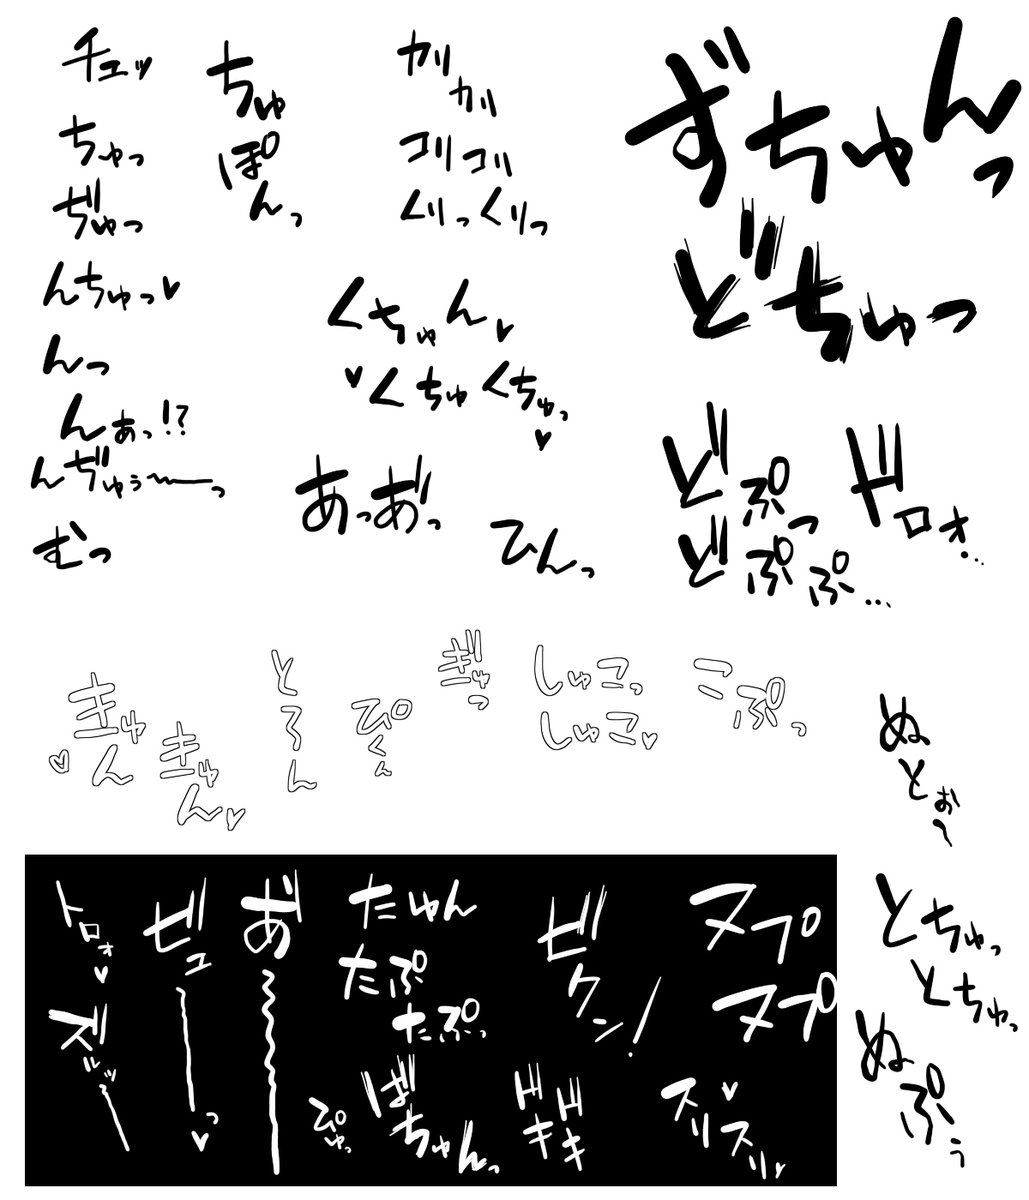 チュッ
ちゅっ
ぢゅっ
んちゅっ♥
んっ
んぁっ!?
んぢゅぅ~ーっ
むっ
ちゅ
ぽ
んっ
カリ
カリ
コリコリ
くりっくりっ
くちゅん♥
♥くちゅくちゅっ♥
あっあ゛っ
ひんっ
ずちゅんっ
どちゅっ
どぷっ
どぷぷ…
ドロォ…
きゅん♡
きゅん♡
とろん
ぴくん
ぎゅっ
しゅこっ
しゅこ♡
こぷっ
ぬとぉ~
とちゅっ
とちゅっ
ぬぷぅ
トロォ♥
ズルッー
ビューっ♥
あ゛~
たゅん
たぷ
たぷっ
ぴゅっ
ばちゅんっ
ビクン!
ドキ
ドキ
ヌプ
ヌプ
スリ♥
スリ♥